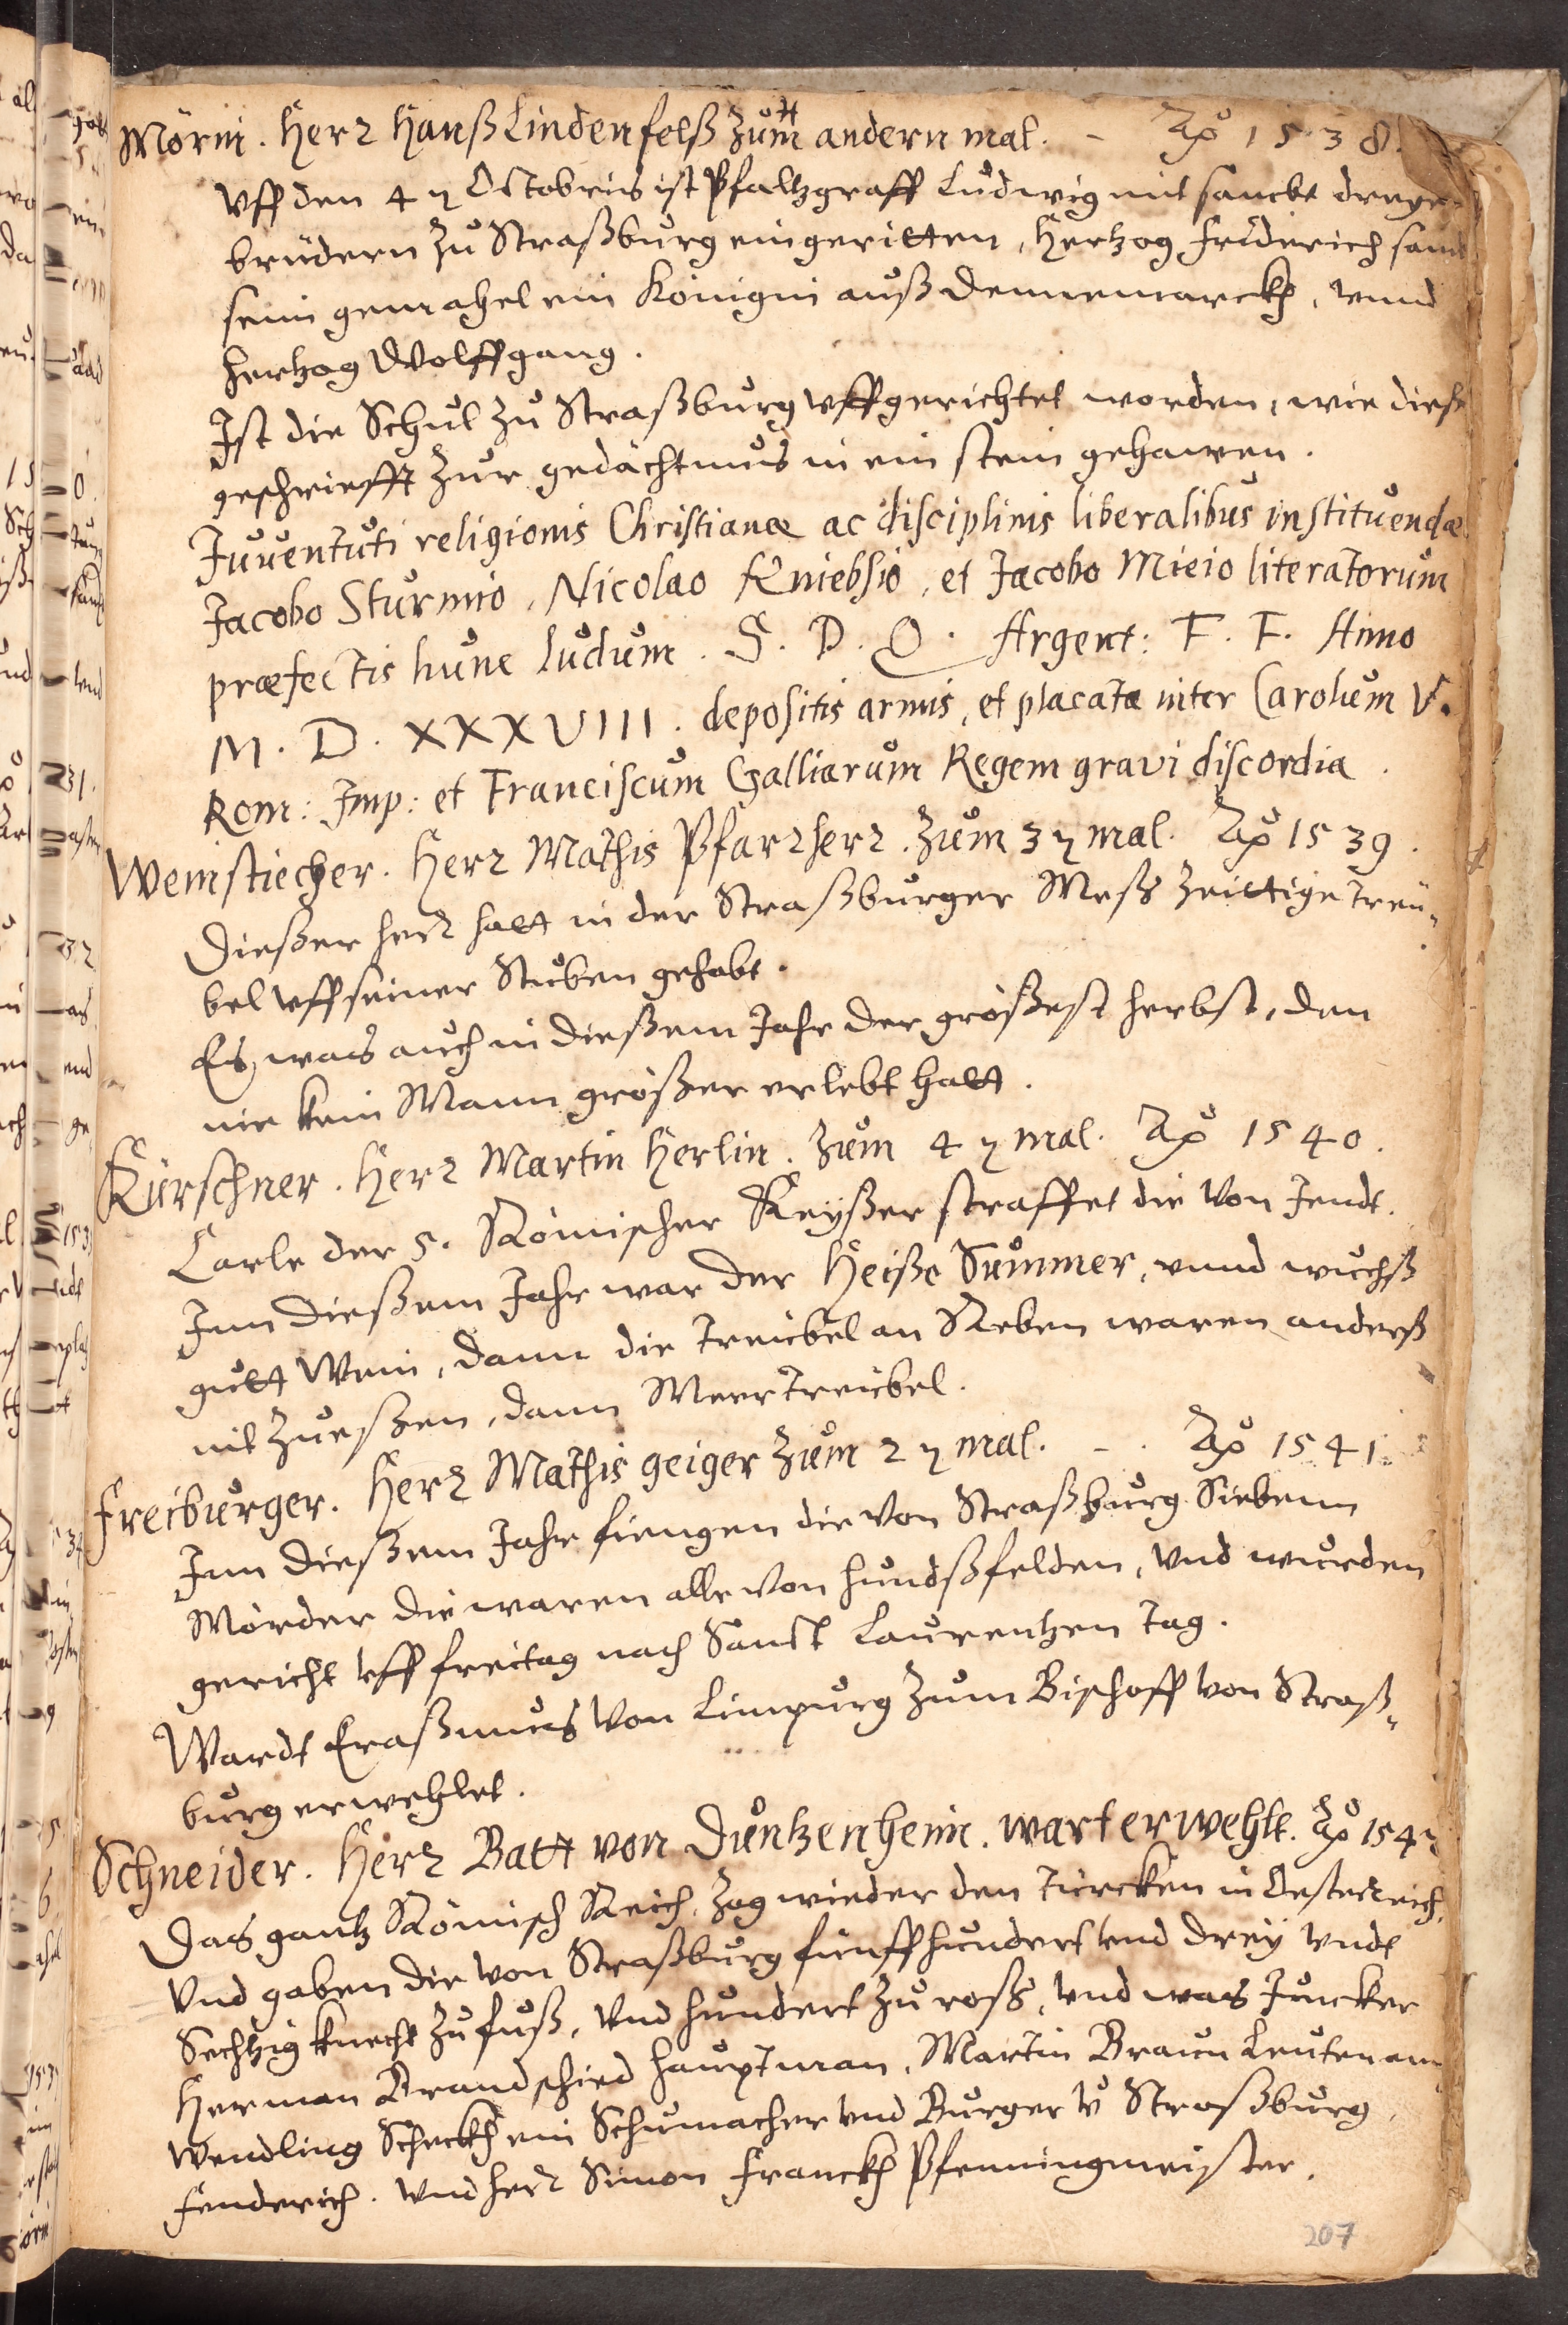 Mörin. Herr Hanß Lindenfelß zum andern mal. - Aõ 1538.
Uff den 4 ten Octobris ist Pfaltzgraff Ludwig mit sambt dreyen
brüdern zu Straßburg eingeritten, Hertzog Friderich samt
sein gemahel ein Königin auß Dennemarckh, unnd
Hertzog Wolffgang.
Ist die Schul zu Straßburg uffgerichtet worden, wie diese
geschriefft zur gedächtnus in ein stein gehawen.
Juventuti religionis Christianæ ac disciplinis liberalibus instituendæ
Jacobo Sturmio, Nicolao Kniebsio, et Jacobo Mieio literatorum
præfectis hunc ludum. S. P. Q. Argent: F. F. Anno
M. D. XXXVIII. depositis armis, et placata inter Carolum V.
Rom: Imp: et Franciscum Galliarum Regem gravi discordia.
Weinstiecher. Herr Mathis Pfarrherr. zum 3 ten mal. Aõ 1539.
Dießer herr hatt in der Straßburger Meß zeittige treü-
bel uff seiner Stuben gehabt.
Es was auch in dießem Jahr der größest herbst, den
nie kein Mann größer erlebt hatt.
Kürschner. Herr Martin Herlin. zum 4 ten mal. Aõ 1540.
Carle der 5. Römischer Keyßer straffet die von Jendt.
Inn dießem Jahr war der Heiße Summer, unnd wuchß
gutt Wein, dann die treübel an Reben waren anderß
nit zu eßen, dann Meertreübel.
Freiburger. Herr Mathis geiger zum 2 ten mal. - . Aõ 1541.
Inn dießem Jahr fiengen die von Straßburg Siebenn
Mörder die waren alle von Hundßfelden, und wurden
gericht uff freitag nach Sanct Laurentzen tag.
Wardt Eraßmus von Limpurg zum Bischoff von Straß-
burg erwehlet.
Schneider. Herr Batt von Duntzenheim. wart erwehlt. Aõ 1542
Das gantz Römisch Reich, zog wieder den Türcken in Oesterreich,
Und gaben die von Straßburg fünffhundert und drey undt
Sechtzig knecht zu fuß, und hundert zu roß, und was Juncker
Herman Brandschied hauptman, Martin Braun Leutenam
Wendling Scheckh ein Schumacher und Burger v Straßburg,
fenderich. und herr Simon Franckh Pfenningmeister.
207